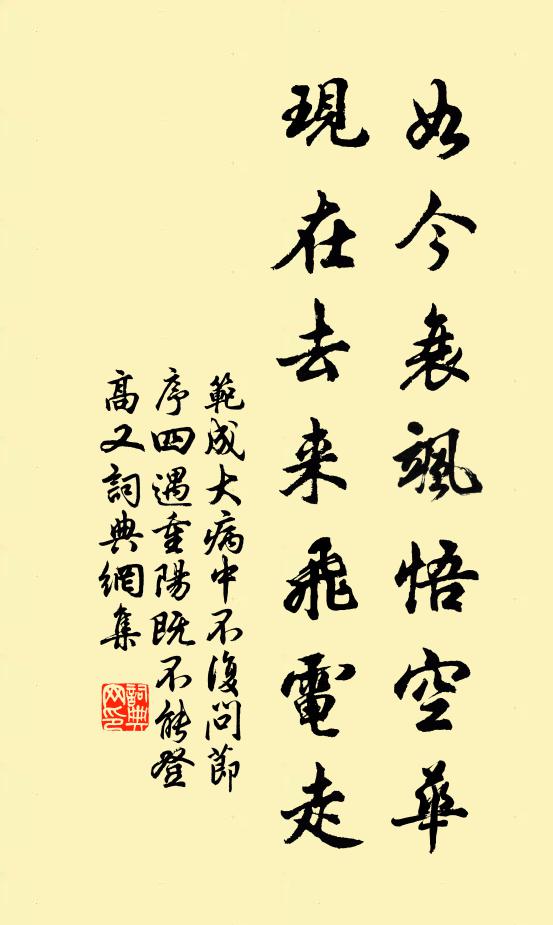 如今衰颯悟空華
現在去来飛電走
範成大病中不復問節
序四遇重陽既不能登
高又詞典網集
詞典网印